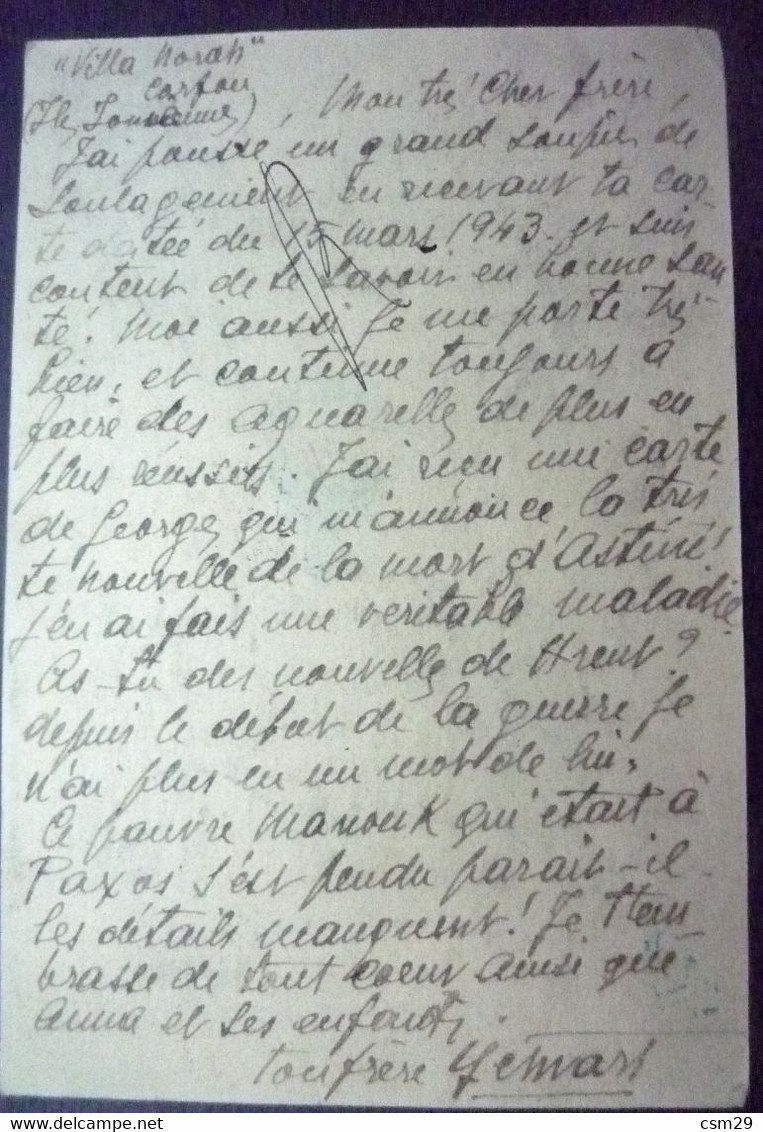 "Villa Norah"
Corfou
(Iles Ioniennes), Mon très Cher frère,
J'ai poussé un grand soupir de
soulagement en recevant ta car-
te datée du 15 mars 1943 - et suis
content de te savoir en bonne san
té! Moi aussi je me porte très
bien, et continue toujours à
faire des aquarelles de plus en
plus réussis. J'ai reçu une carte
de Georges qui m'annonce la tris
te nouvelle de la mort d'Astiné!
j'en ai fais une veritable maladie.
As-tu des nouvelles de Hrent?
depuis le début de la guerre je
n'ai plus eu un mot de lui.
Ce pauvre Manouk qui était à
Paxos s'est pendu parait-il -
les détails manquent! Je t'em-
brasse de tout coeur ainsi que
Anna et ses enfants.
ton frère
csm29